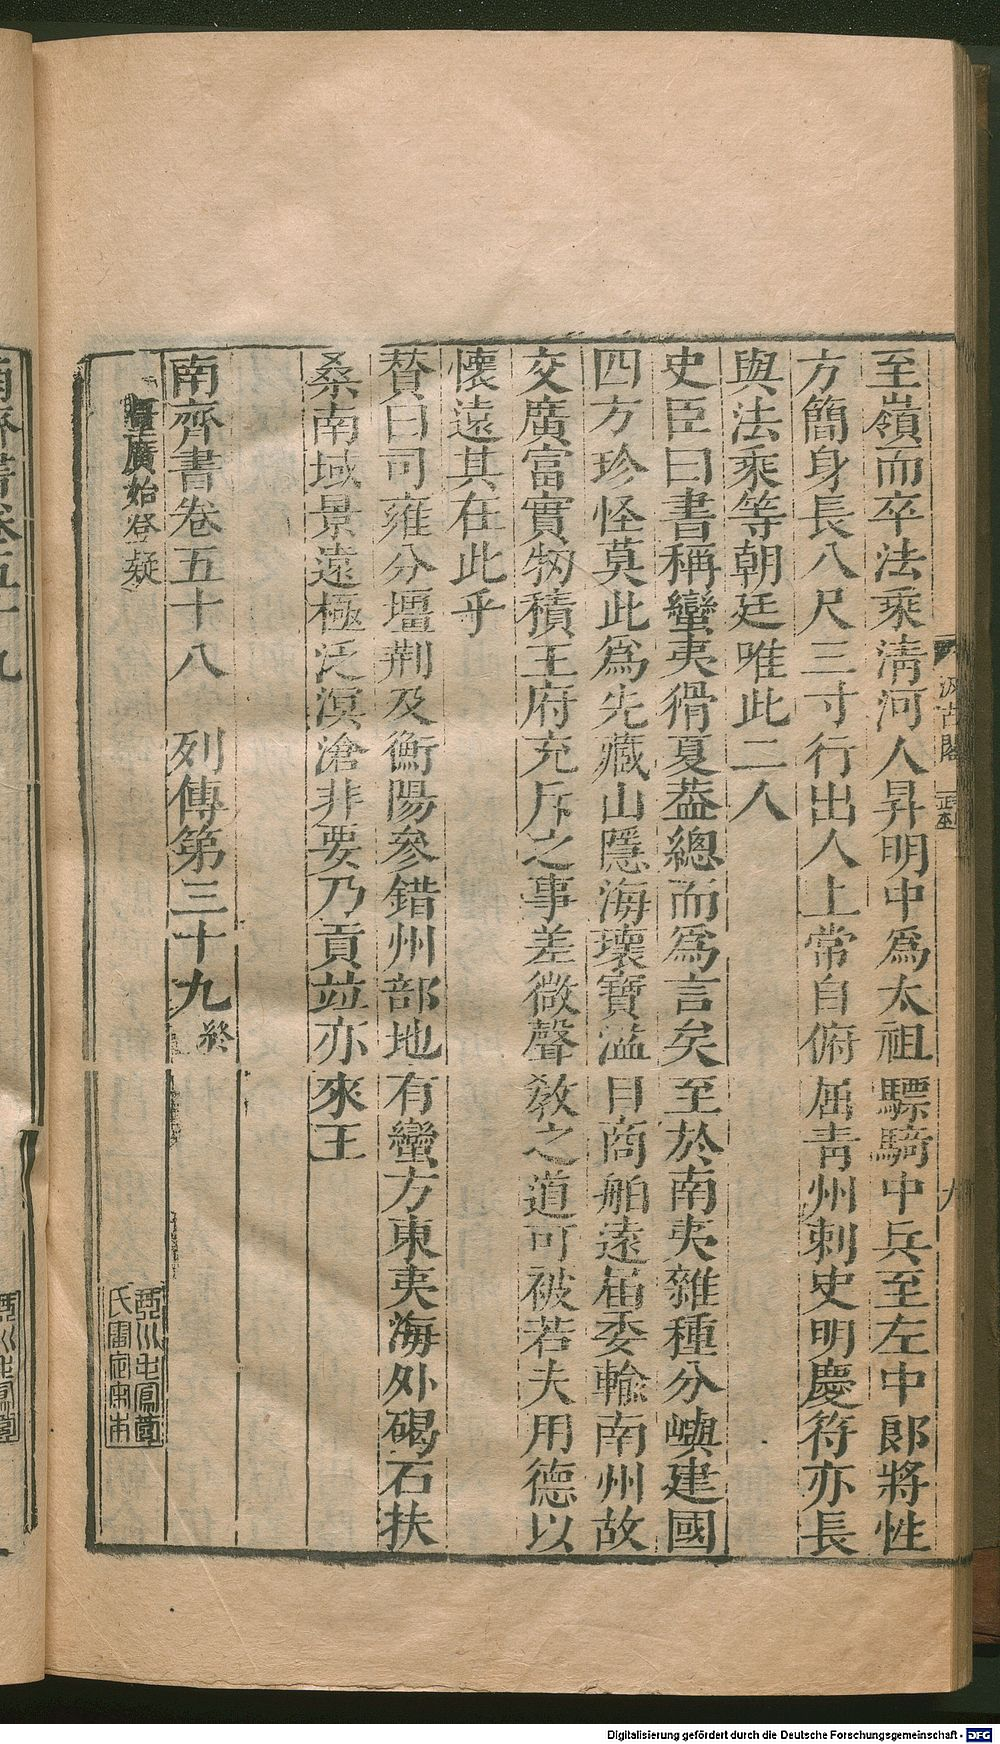 至嶺而卒法乘清河人昇明中爲太祖驃騎中兵至左中郎將性
方簡身長八尺三寸行出人上常自俯屈青州刺史明慶符亦長
與法乘等朝廷唯此二人
史臣曰書稱蠻夷猾夏葢總而爲言矣至於南夷雜種分嶼建國
四方珍怪莫此爲先藏山隱海瓌寶溢目商舶遠届委輸南州故
交廣富實牣積王府充斥之事差微聲敎之道可被若夫用德以
懷遠其在此乎
賛曰司雍分壃荆及衡陽參錯州部地有蠻方東夷海外碣石扶
桑南域景遠極泛溟滄非要乃貢竝亦來王
南齊書卷五十八 列傳第三十九 終
廣始登疑
汲古閣
九
南齊書卷五十九
Digitalisierung gefördert durch die Deutsche Forschungsgemeinschaft - DFG